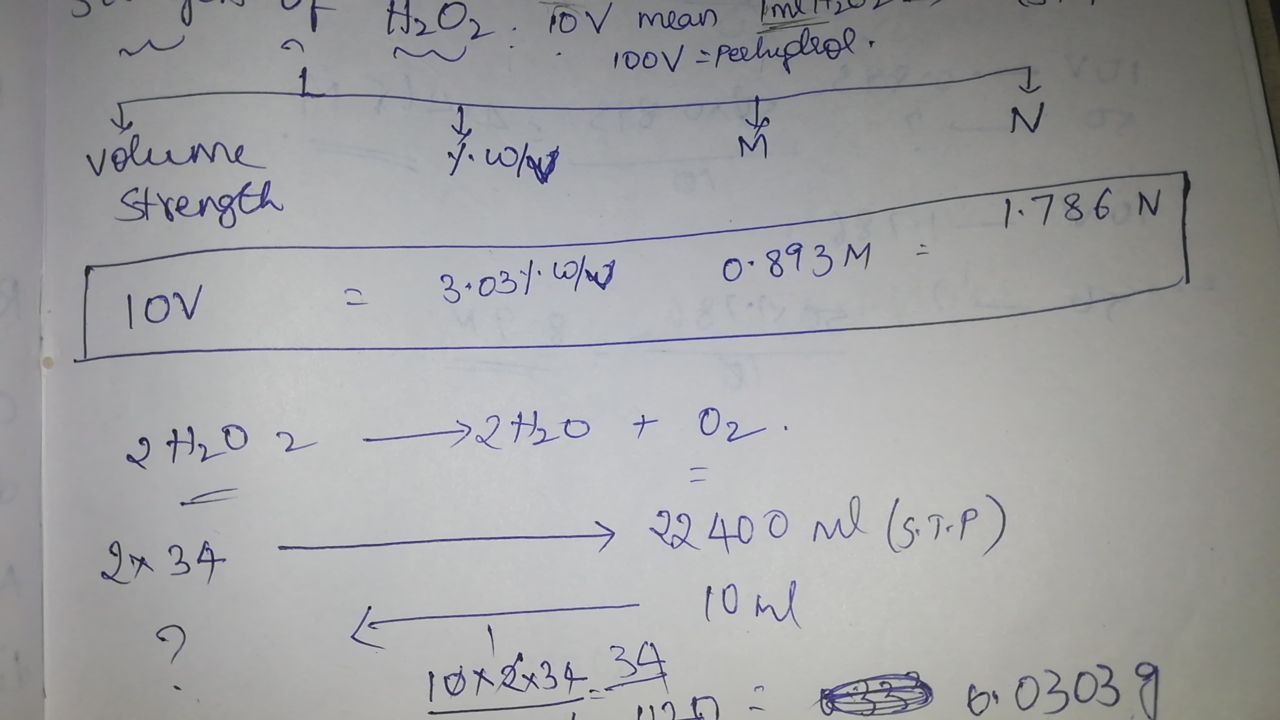 of H2O2. 10V mean 1ml H2O2
100V = Perhydrol.
Volume Strength %.W/V M N
10V = 3.03%.W/V 0.893M = 1.786 N
2H2O2 → 2H2O + O2.
2x34 → 22400 ml (S.T.P)
? ← 10 ml
10x2x34 = 34
= 0.0303g